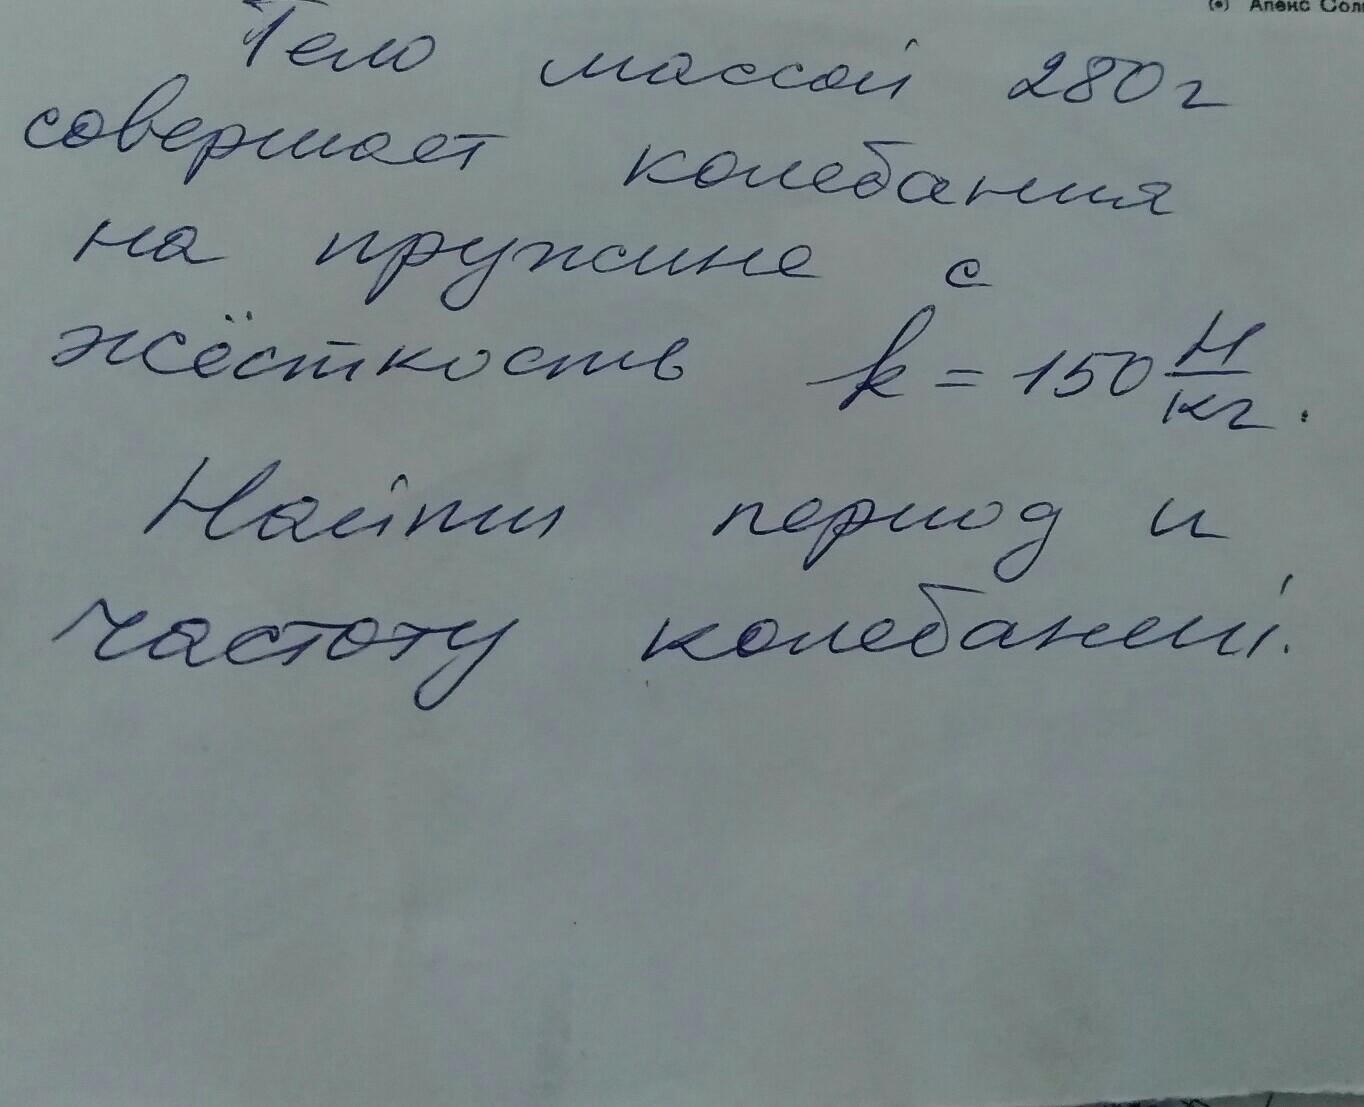 (•) Алекс Сол
Тело массой 280г
совершает колебания
на пружине с
жёсткость k = 150 Н/кг.
Найти период и
частоту колебаний.